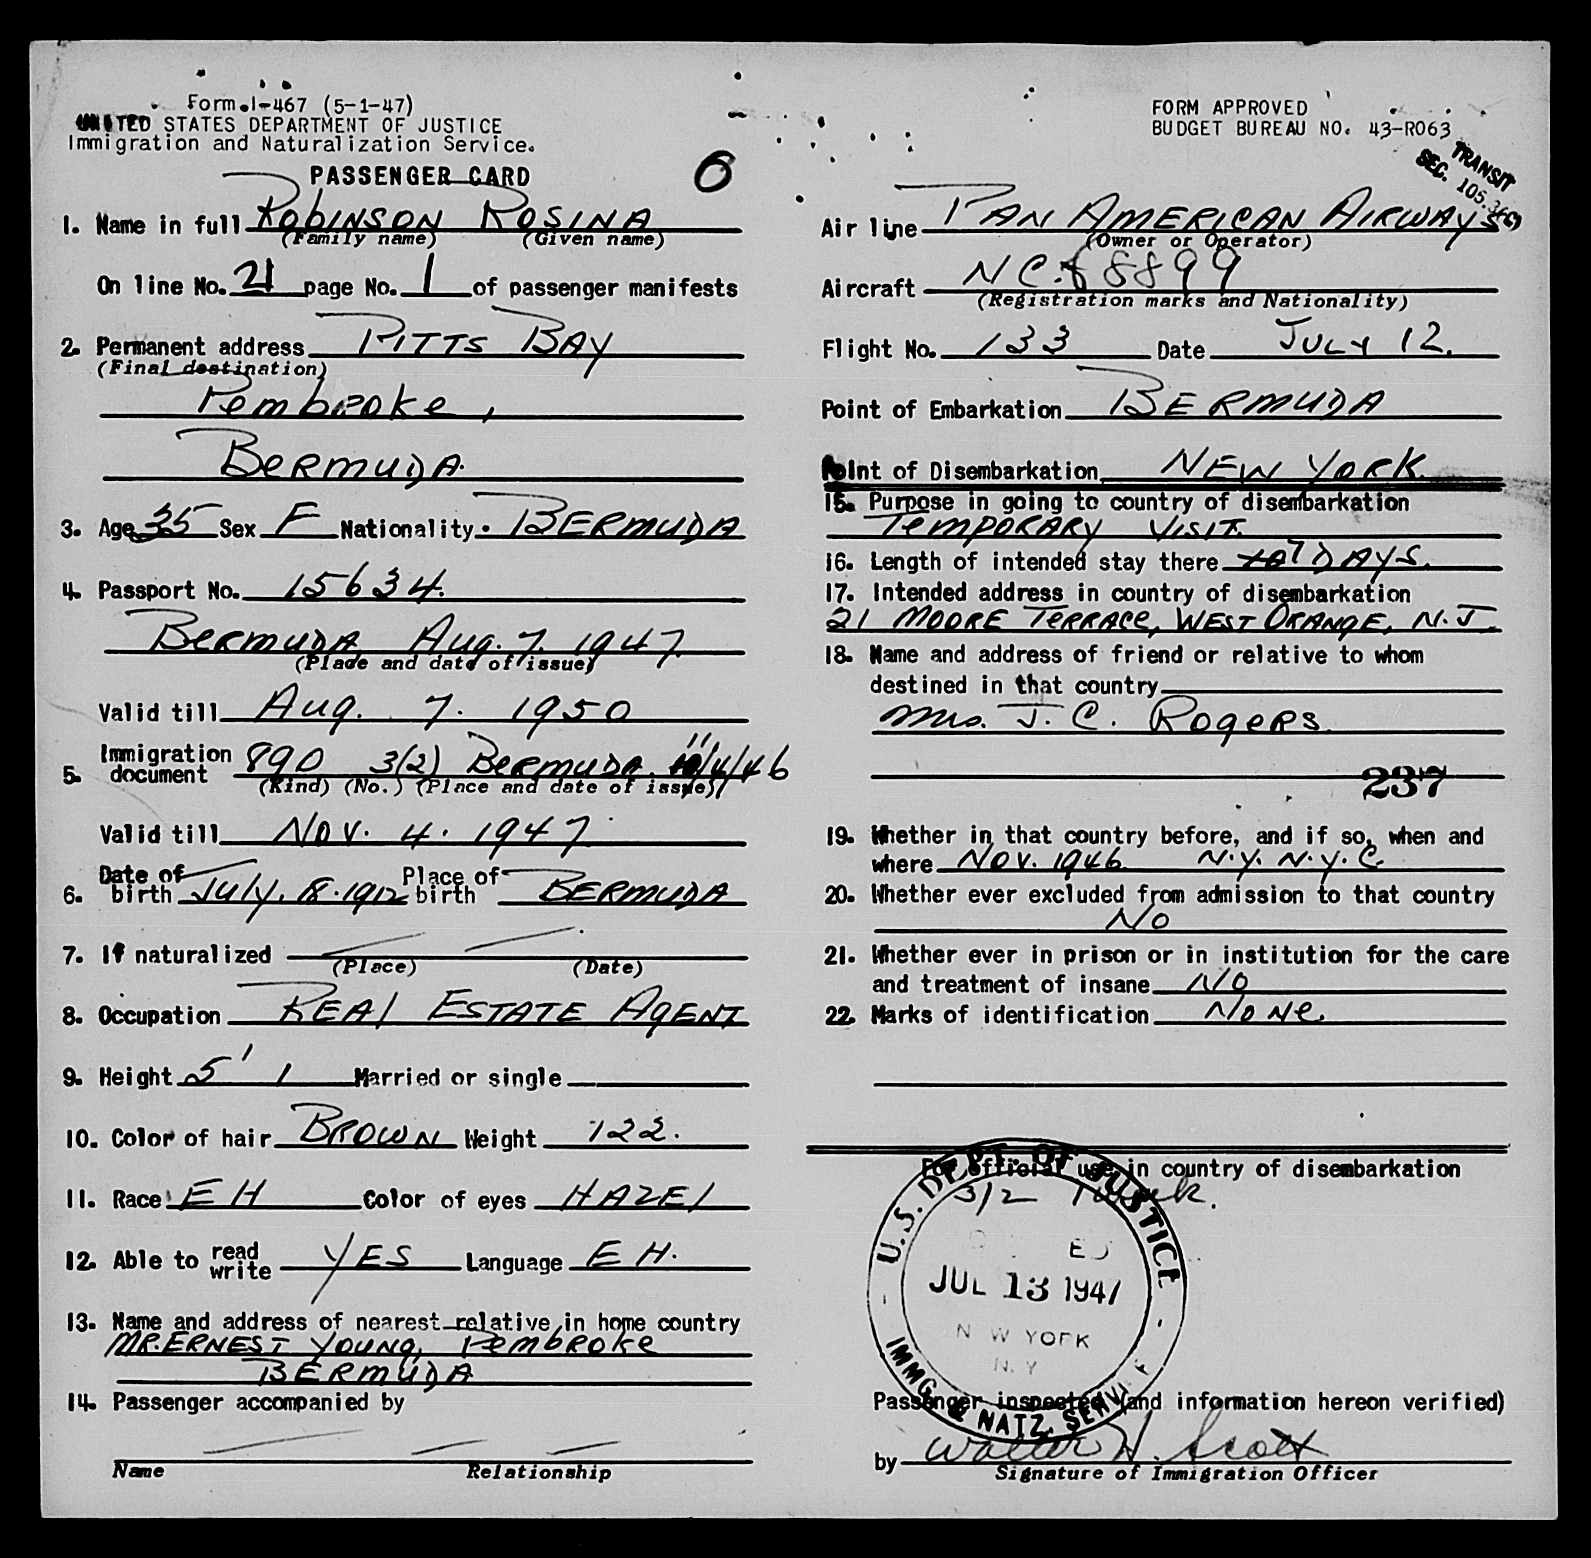 Form I-467 (5-1-47)
UNITED STATES DEPARTMENT OF JUSTICE
Immigration and Naturalization Service.
PASSENGER CARD
6
1. Name in full ROBINSON ROSINA
(Family name) (Given name)
On line No. 21 page No. 1 of passenger manifests
2. Permanent address PITTS BAY
(Final destination)
Pembroke,
BERMUDA.
3. Age 35 Sex F Nationality. BERMUDA
4. Passport No. 15634.
BERMUDA Aug. 7. 1947.
(Place and date of issue)
Valid till Aug. 7. 1950
5. Immigration document 890 3(2) BERMUDA 11/4/46
(Kind) (No.) (Place and date of issue)
Valid till Nov. 4. 1947.
6. Date of birth July. 18. 1912 Place of birth BERMUDA
7. If naturalized
(Place) (Date)
8. Occupation REAl ESTATE AgENT
9. Height 5' 1 Married or single
10. Color of hair BROWN Weight 122.
11. Race EH Color of eyes HAZEl
12. Able to read write YES Language EH.
13. Name and address of nearest relative in home country
MR. ERNEST YOUNG, Pembroke
BERMUDA
14. Passenger accompanied by
Name Relationship
FORM APPROVED
BUDGET BUREAU NO. 43-R063
TRANSIT
SEC. 105.3
Air line PAN AMERICAN AIRWAYS
(Owner or Operator)
Aircraft NC. 88899
(Registration marks and Nationality)
Flight No. 133 Date JULY 12.
Point of Embarkation BERMUDA
Point of Disembarkation NEW YORK.
15. Purpose in going to country of disembarkation
TEMPORARY VISIT.
16. Length of intended stay there 7 DAYS.
17. Intended address in country of disembarkation
21 MOORE TERRACE, WEST ORANGE, N.J.
18. Name and address of friend or relative to whom
destined in that country
Mrs. J. C. Rogers.
237
19. Whether in that country before, and if so, when and
where Nov. 1946. N.Y. N.Y.C.
20. Whether ever excluded from admission to that country
No
21. Whether ever in prison or in institution for the care
and treatment of insane No
22. Marks of identification None.
For official use in country of disembarkation
3/2
U.S. DEPT. OF JUSTICE
JUL 13 1947
NEW YORK
N.Y
IMMG. & NATZ. SERVICE
Passenger inspected (and information hereon verified)
by Walter H. Scott
Signature of Immigration Officer